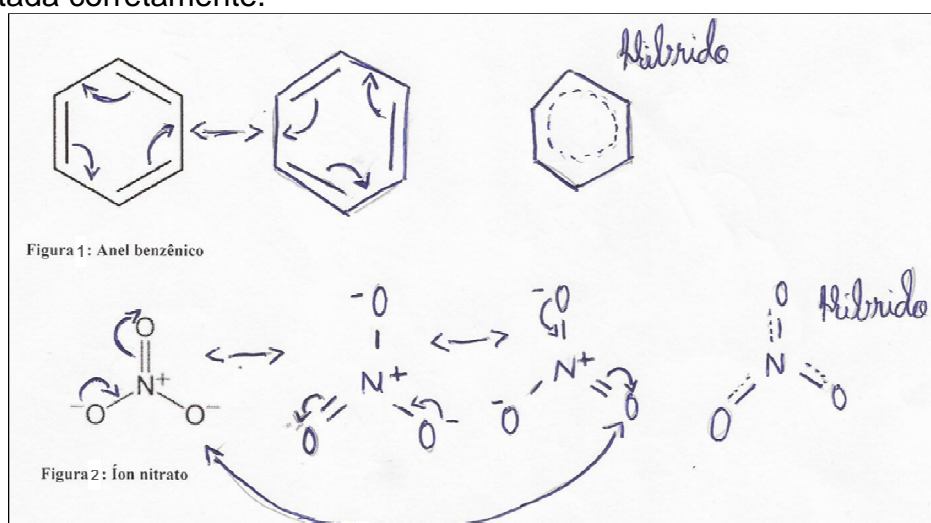 tada corretamente.
Híbrido
Figura 1: Anel benzênico
O
N⁺
⁻O
O⁻
⁻O
N⁺
O
O⁻
⁻O
N⁺
⁻O
O
O
N
O
O
Híbrido
Figura 2: Íon nitrato